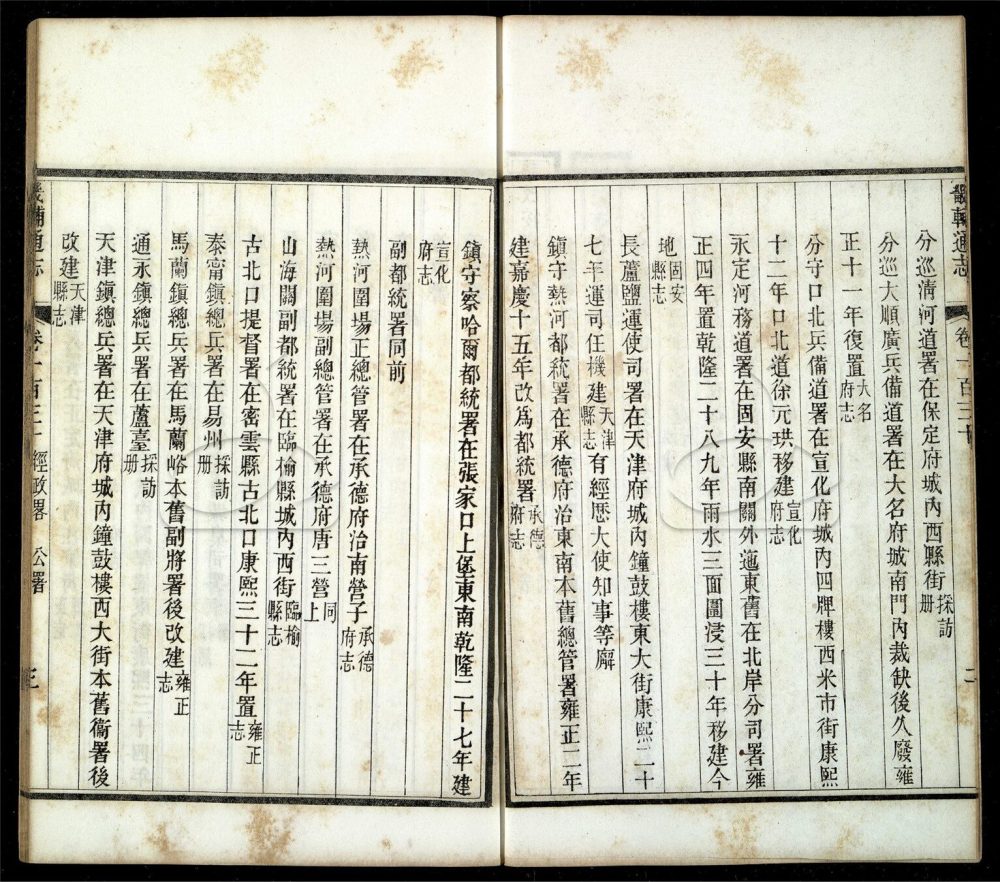 畿輔通志 卷一百三十 二
分巡清河道署在保定府城內西縣街採訪冊
分巡大順廣兵備道署在大名府城南門內裁缺後久廢雍
正十一年復置大名府志
分守口北兵備道署在宣化府城內四牌樓西米市街康熙
十二年口北道徐元珙移建宣化府志
永定河務道署在固安縣南關外迤東舊在北岸分司署雍
正四年置乾隆二十八九年雨水三面圍浸三十年移建今
地固安縣志
長蘆鹽運使司署在天津府城內鐘鼓樓東大街康熙二十
七年運司任機建天津縣志有經歷大使知事等廨
鎮守熱河都統署在承德府治東南本舊總管署雍正二年
建嘉慶十五年改為都統署承德府志
鎮守察哈爾都統署在張家口上堡東南乾隆二十七年建
宣化府志
副都統署同前
熱河圍場正總管署在承德府治南營子承德府志
熱河圍場副總管署在承德府唐三營同上
山海關副都統署在臨榆縣城內西街臨榆縣志
古北口提督署在密雲縣古北口康熙三十二年置雍正志
泰甯鎮總兵署在易州採訪冊
馬蘭鎮總兵署在馬蘭峪本舊副將署後改建雍正志
通永鎮總兵署在蘆臺採訪冊
天津鎮總兵署在天津府城內鐘鼓樓西大街本舊衞署後
改建天津縣志
畿輔通志 卷一百三十 經政畧 公署 三